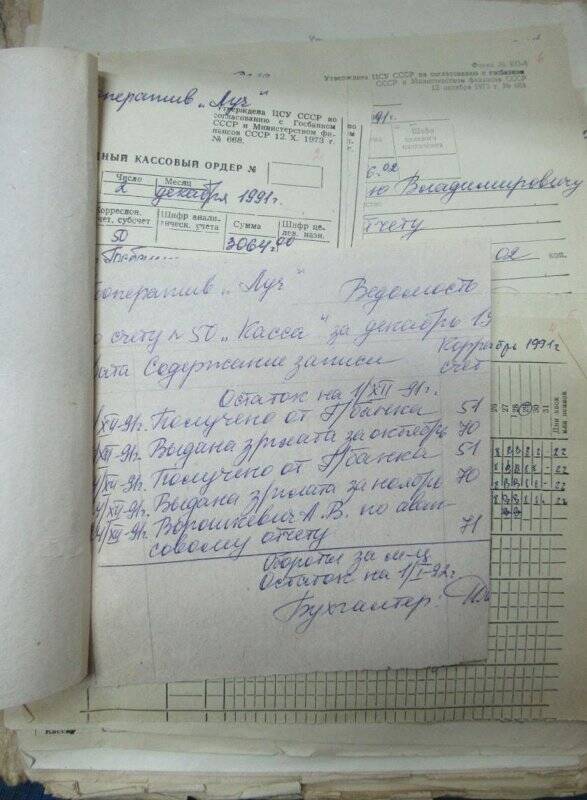 Форма № КО-1
Утверждена ЦСУ СССР по согласованию с Госбанком
СССР и Министерством финансов СССР
12 октября 1973 г. № 668
оператив „Луч“
тверждена ЦСУ СССР по
согласованию с Госбанком
СССР и Министерством фи-
нансов СССР 12. X. 1973 г.
№ 668.
НЫЙ КАССОВЫЙ ОРДЕР №
Число Месяц
2 декабря 1991г.
Корреспон.
чет, субсчет
Шифр анали-
тическ. учета
Сумма
Шифр це-
лев. назн.
50
3064=00
91г.
Шифр
целевого
назначения
6.02
ю Владимировичу
тчету
02 коп.
оператив „Луч“ Ведомость
о счету №50 „Касса“ за декабрь 19
ата Содержание записи Корр
счет
Остаток на 1/XII-91г.
/XII-91г. Получено от Г/банка 51
/XII-91г. Выдана з/плата за октябрь 70
/XII-91г. Получено от Г/банка 51
/XII-91г. Выдана з/плата за ноябрь 70
/XII-91г. Ворошкевич А.В. по аван-
совому отчету 71
Обороты за м-ц
Остаток на 1/I-92г.
Бухгалтер:
абрь 1991г
26 27 28 29 30 31
Дни неяв
Кассир